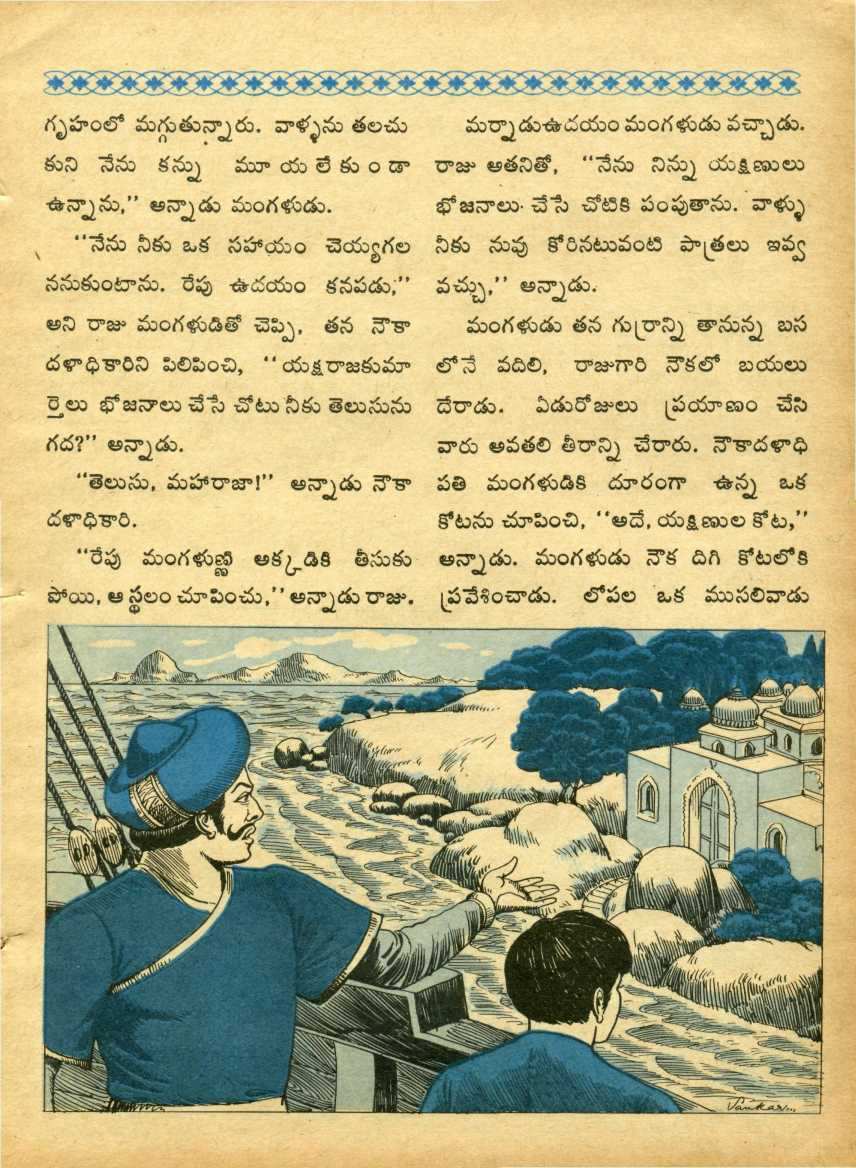 గృహంలో మగ్గుతున్నారు. వాళ్ళను తలచు
కుని నేను కన్ను మూయలేకుండా
ఉన్నాను,'' అన్నాడు మంగళుడు.
''నేను నీకు ఒక సహాయం చెయ్యగల
ననుకుంటాను. రేపు ఉదయం కనపడు;''
అని రాజు మంగళుడితో చెప్పి, తన నౌకా
దళాధికారిని పిలిపించి, ''యక్షరాజకుమా
ర్తెలు భోజనాలు చేసే చోటు నీకు తెలుసును
గద?'' అన్నాడు.
''తెలుసు, మహారాజా!'' అన్నాడు నౌకా
దళాధికారి.
''రేపు మంగళుణ్ణి అక్కడికి తీసుకు
పోయి, ఆ స్థలం చూపించు,'' అన్నాడు రాజు.
మర్నాడుఉదయం మంగళుడు వచ్చాడు.
రాజు అతనితో, ''నేను నిన్ను యక్షిణులు
భోజనాలు చేసే చోటికి పంపుతాను. వాళ్ళు
నీకు నువు కోరినటువంటి పాత్రలు ఇవ్వ
వచ్చు,'' అన్నాడు.
మంగళుడు తన గుర్రాన్ని తానున్న బస
లోనే వదిలి, రాజుగారి నౌకలో బయలు
దేరాడు. ఏడురోజులు ప్రయాణం చేసి
వారు అవతలి తీరాన్ని చేరారు. నౌకాదళాధి
పతి మంగళుడికి దూరంగా ఉన్న ఒక
కోటను చూపించి, ''అదే, యక్షిణుల కోట,''
అన్నాడు. మంగళుడు నౌక దిగి కోటలోకి
ప్రవేశించాడు. లోపల ఒక ముసలివాడు
Vankar...